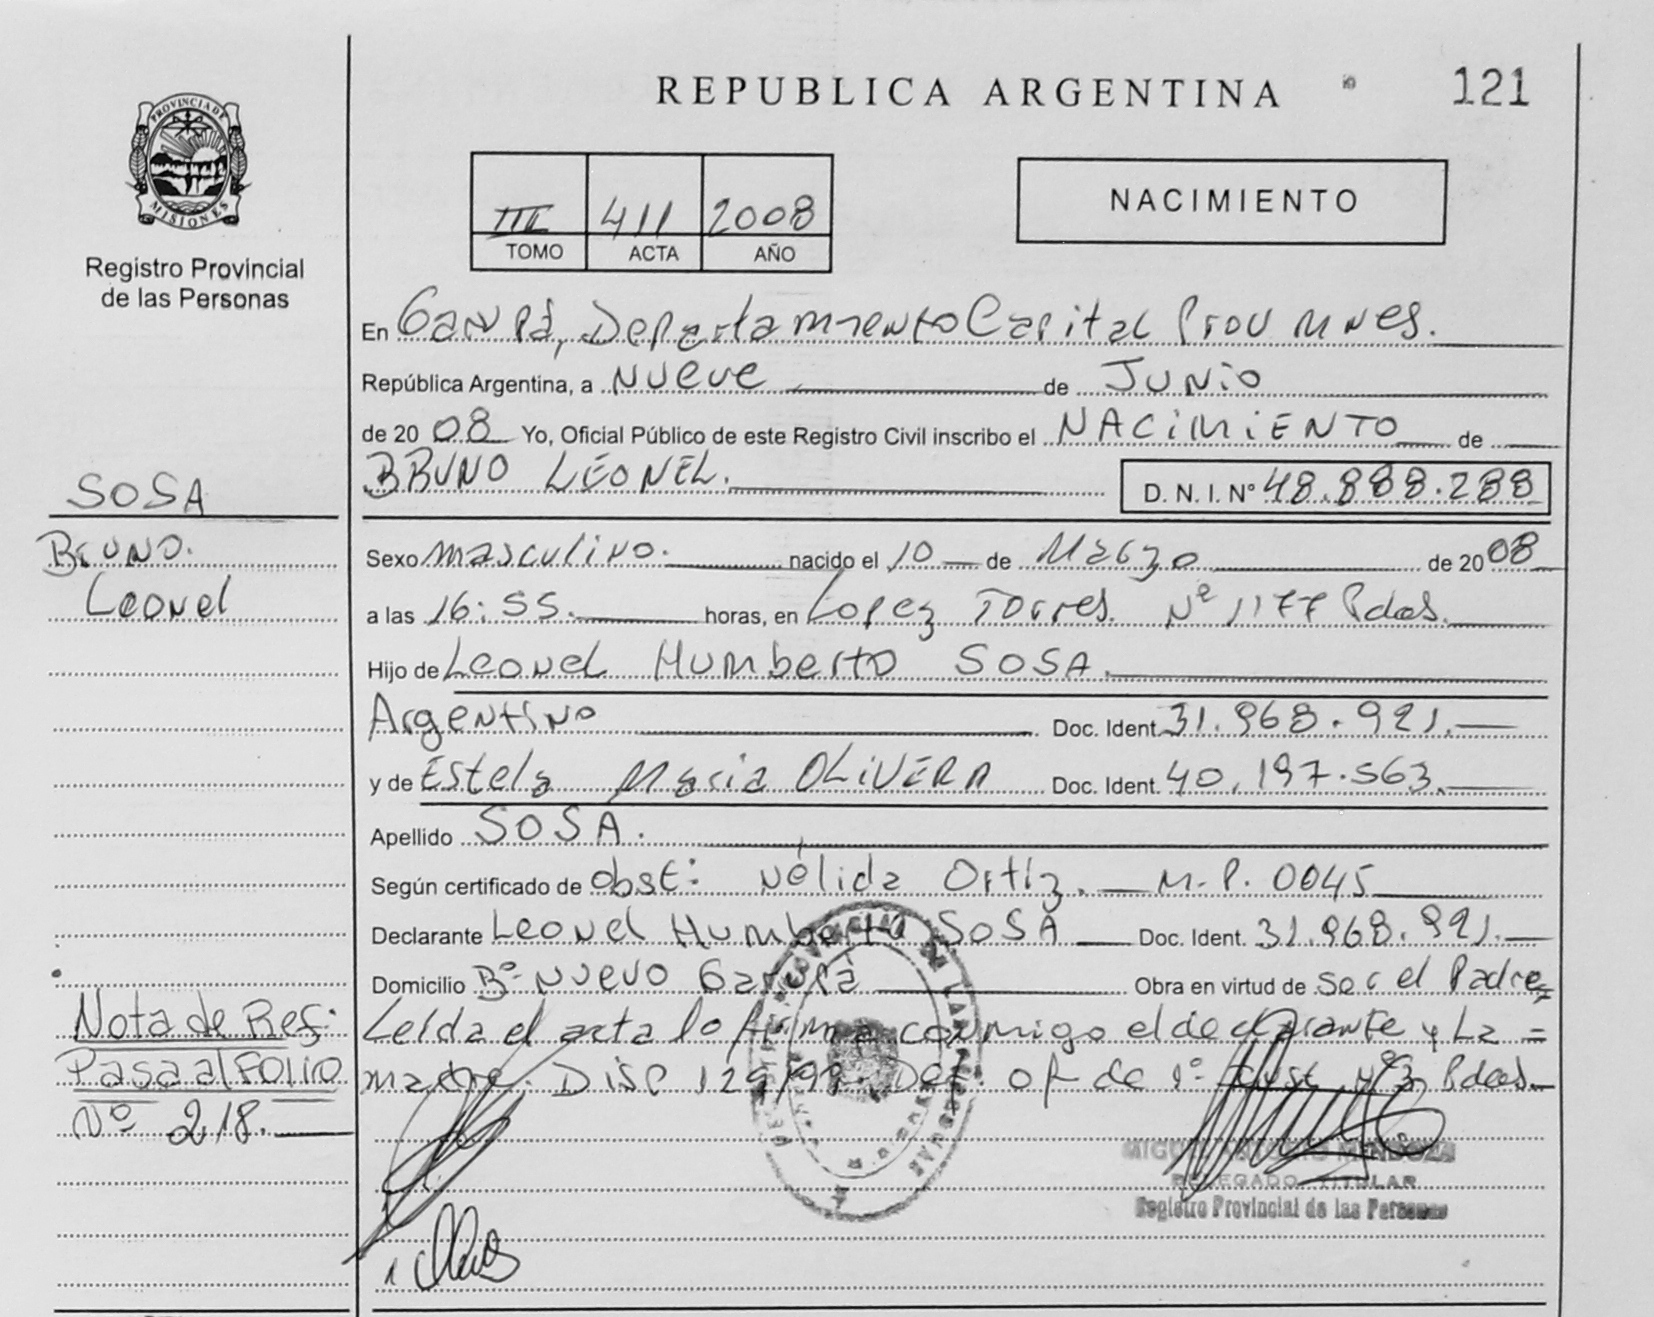 REPUBLICA ARGENTINA
121
PROVINCIA DE
MISIONES
Registro Provincial
de las Personas
III 411 2008
TOMO ACTA AÑO
NACIMIENTO
En Garupá, Departamento Capital Prov Mnes.
República Argentina, a Nueve de Junio
de 2008 Yo, Oficial Público de este Registro Civil inscribo el NACIMIENTO de
BRUNO LEONEL.
D. N. I. Nº 48.888.288
SOSA
Bruno.
Leonel
Sexo masculino. nacido el 10 de Marzo de 2008
a las 16:55. horas, en Lopez Torres. Nº 1177 Pdas.
Hijo de Leonel Humberto SOSA.
Argentino Doc. Ident. 31.968.921.
y de Estela Maria OLIVERA Doc. Ident. 40.197.563.
Apellido SOSA.
Según certificado de obst: Nélida Ortiz. M.P. 0045
Declarante Leonel Humberto SOSA Doc. Ident. 31.968.921.
Domicilio Bº Nuevo Garupá Obra en virtud de ser el Padre,
Leída el acta lo firma conmigo el declarante y La =
madre. Disp 129/99. Def. of de 1º Inst Nº3 Pdas.
Nota de Ref:
Pasa al FOLIO
Nº 218.
MIGUEL ANTONIO MENDOZA
DELEGADO TITULAR
Registro Provincial de las Personas